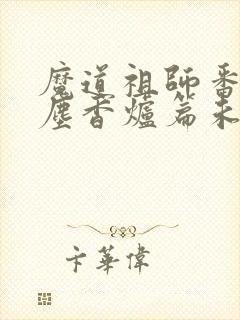 魔道祖師番
塵香爐篇未
卞華偉